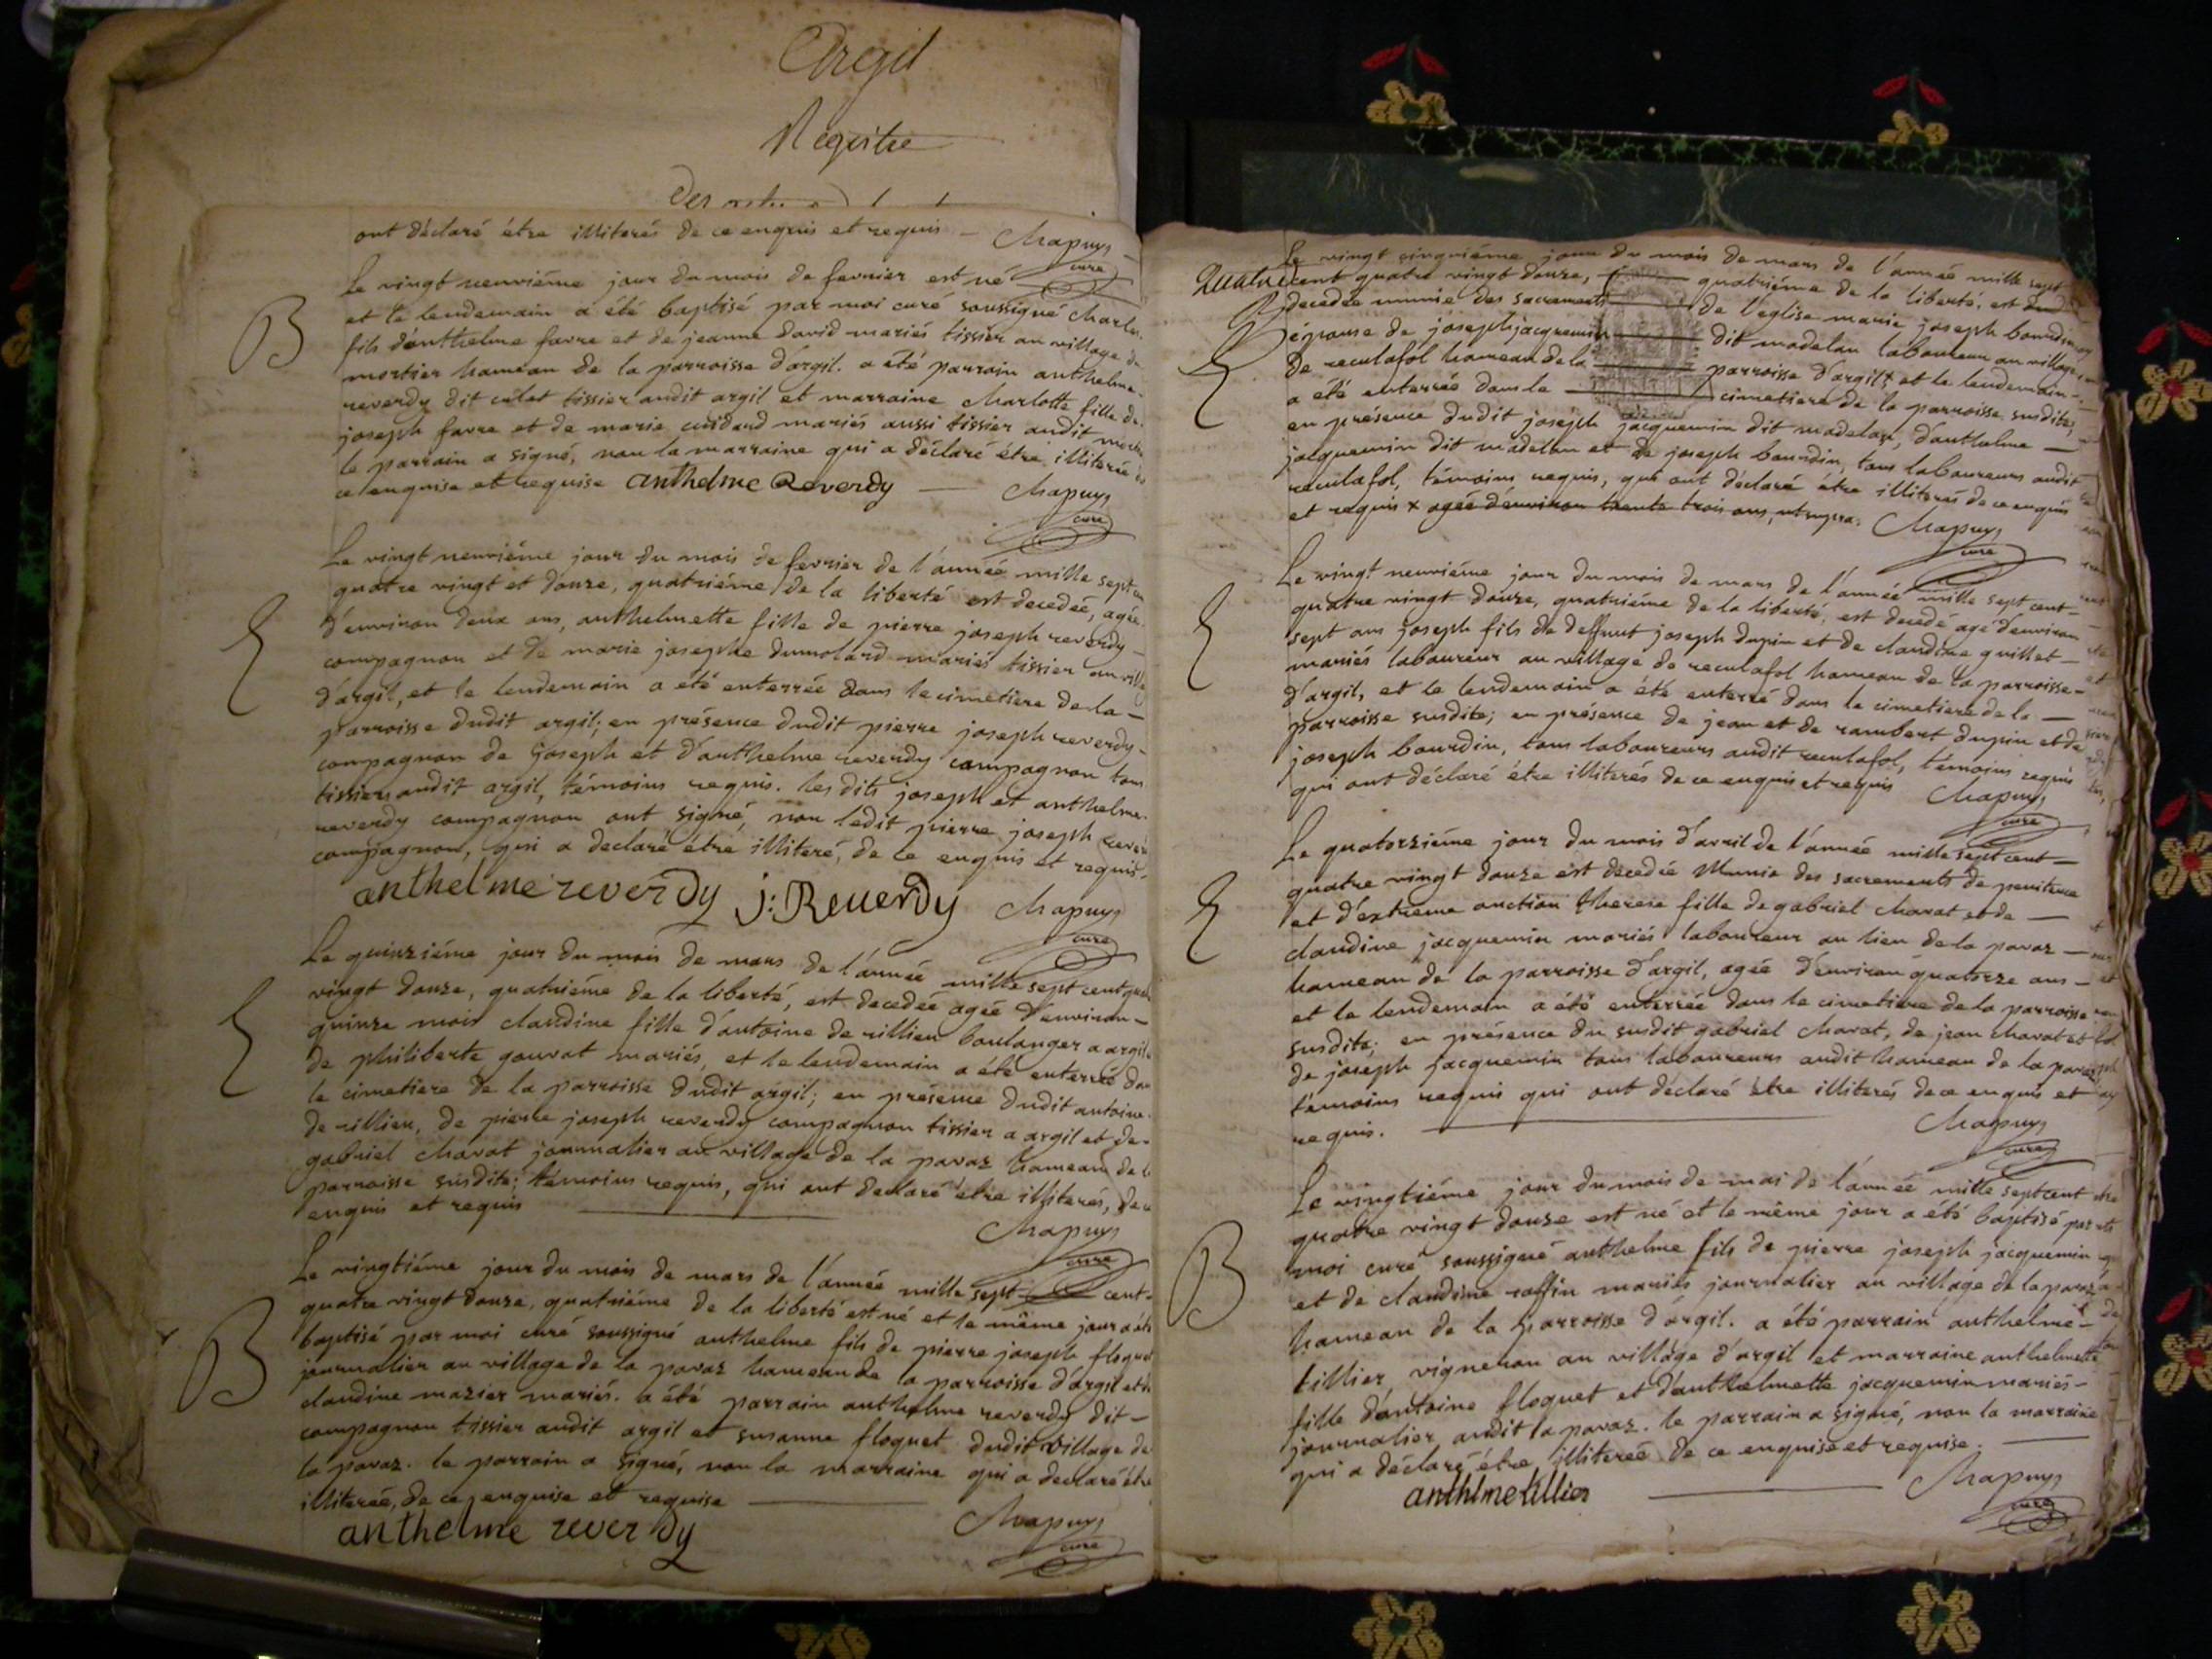 Argil
Registre
Des
ont déclaré être illiterés de ce enquis et requis — Chapuys
curé
Le vingt neuviéme jour du mois de fevrier est né
et le lendemain a été baptisé par moi curé soussigné Charles
B
fils d'anthelme favre et de jeanne david mariés tissier au village de
mortier hameau de la parroisse d'argil. a été parrain anthelme
reverdy dit tissier audit argil et marraine Charlotte fille de
joseph favre et de marie mariés aussi tissier audit
le parrain a signé, non la marraine qui a déclaré être illiterée
ce enquise et requise anthelme Reverdy — Chapuys
curé
Le vingt neuviéme jour du mois de fevrier de l'année mille sept
quatre vingt et douze, quatriéme de la liberté est decedée, agée
d'environ deux ans, anthelmette fille de pierre joseph reverdy —
compagnon et de marie josephe dumolard mariés tissier au
d'argil, et le lendemain a été enterrée dans le cimetiere de la —
parroisse dudit argil; en présence dudit pierre joseph reverdy
compagnon de joseph et d'anthelme reverdy compagnon tous
tissiers audit argil, témoins requis. les dits joseph et anthelme
reverdy compagnon ont signé, non ledit pierre joseph
compagnon, qui a declaré etre illiteré, de ce enquis et requis.
anthelme reverdy j: Reverdy Chapuys
curé
Le quinziéme jour du mois de mars de l'année mille sept cent
vingt douze, quatriéme de la liberté, est decedée agée d'environ —
quinze mois claudine fille d'antoine de rillieu boulanger a argil
de philiberte gouvat mariés, et le lendemain a été enterrée
le cimetiere de la parroisse dudit argil; en présence dudit antoine
de rillieu, de pierre joseph reverdy compagnon tissier a argil et de
gabriel chavat journalier au village de la pavaz hameau de
parroisse susdite; témoins requis, qui ont declaré etre illiterés, de
enquis et requis Chapuys
curé
Le vingtiéme jour du mois de mars de l'année mille sept cent
quatre vingt douze, quatriéme de la liberté est né et le même jour a été
B
baptisé par moi curé soussigné anthelme fils de pierre joseph floquet
journalier au village de la pavaz hameau de la parroisse d'argil et de
claudine mazier mariés. a été parrain anthelme reverdy dit —
compagnon tissier audit argil et susanne floquet dudit village de
la pavaz. le parrain a signé, non la marraine qui a declaré être
illiterée, de ce enquise et requise
anthelme reverdy Chapuys
curé
Le vingt cinquiéme jour du mois de mars de l'année mille sept
cent quatre vingt douze, quatriéme de la liberté, est
decedée munie des sacrements de l'eglise marie joseph bourdin
épouse de joseph jacquemin dit madelan laboureur au village
de reculafol hameau de la parroisse d'argil x et le lendemain —
a été enterrée dans le cimetiere de la parroisse susdite;
en présence dudit joseph jacquemin dit madelan, d'anthelme —
jacquemin dit madelan et de joseph bourdin, tous laboureurs audit
reculafol, témoins requis, qui ont déclaré être illiterés de ce enquis
et requis x agée d'environ trente trois ans, ut supra. Chapuys
curé
Le vingt neuviéme jour du mois de mars de l'année mille sept cent —
quatre vingt douze, quatriéme de la liberté, est decedé agé d'environ
sept ans joseph fils de deffunt joseph dupin et de claudine guillet —
mariés laboureur au village de reculafol hameau de la parroisse
d'argil, et le lendemain a été enterré dans le cimetiere de la —
parroisse susdite; en présence de jean et de rambert dupin et de
joseph bourdin, tous laboureurs audit reculafol, témoins requis
qui ont déclaré être illiterés de ce enquis et requis Chapuys
curé
Le quatorziéme jour du mois d'avril de l'année mille sept cent —
quatre vingt douze est decedée Munie des sacrements de penitence
et d'extreme onction therese fille de gabriel chavat et de —
claudine jacquemin mariés laboureur au lieu de la pavaz —
hameau de la parroisse d'argil, agée d'environ quatorze ans —
et le lendemain a été enterrée dans le cimetiere de la parroisse
susdite; en présence du susdit gabriel chavat, de jean chavat et
de joseph jacquemin tous laboureurs audit hameau de la pavaz
témoins requis qui ont déclaré être illiterés de ce enquis et
requis. Chapuys
curé
Le vingtiéme jour du mois de mai de l'année mille sept cent
quatre vingt douze est né et le même jour a été baptisé par
B
moi curé soussigné anthelme fils de pierre joseph jacquemin
et de claudine raffin mariés journalier au village de la pavaz
hameau de la parroisse d'argil. a été parrain anthelme —
tillier vigneron au village d'argil et marraine anthelmette
fille d'antoine floquet et d'anthelmette jacquemin mariés —
journalier audit la pavaz. le parrain a signé, non la marraine
qui a déclaré être illiterée de ce enquise et requise.
anthlme tillier Chapuys
curé